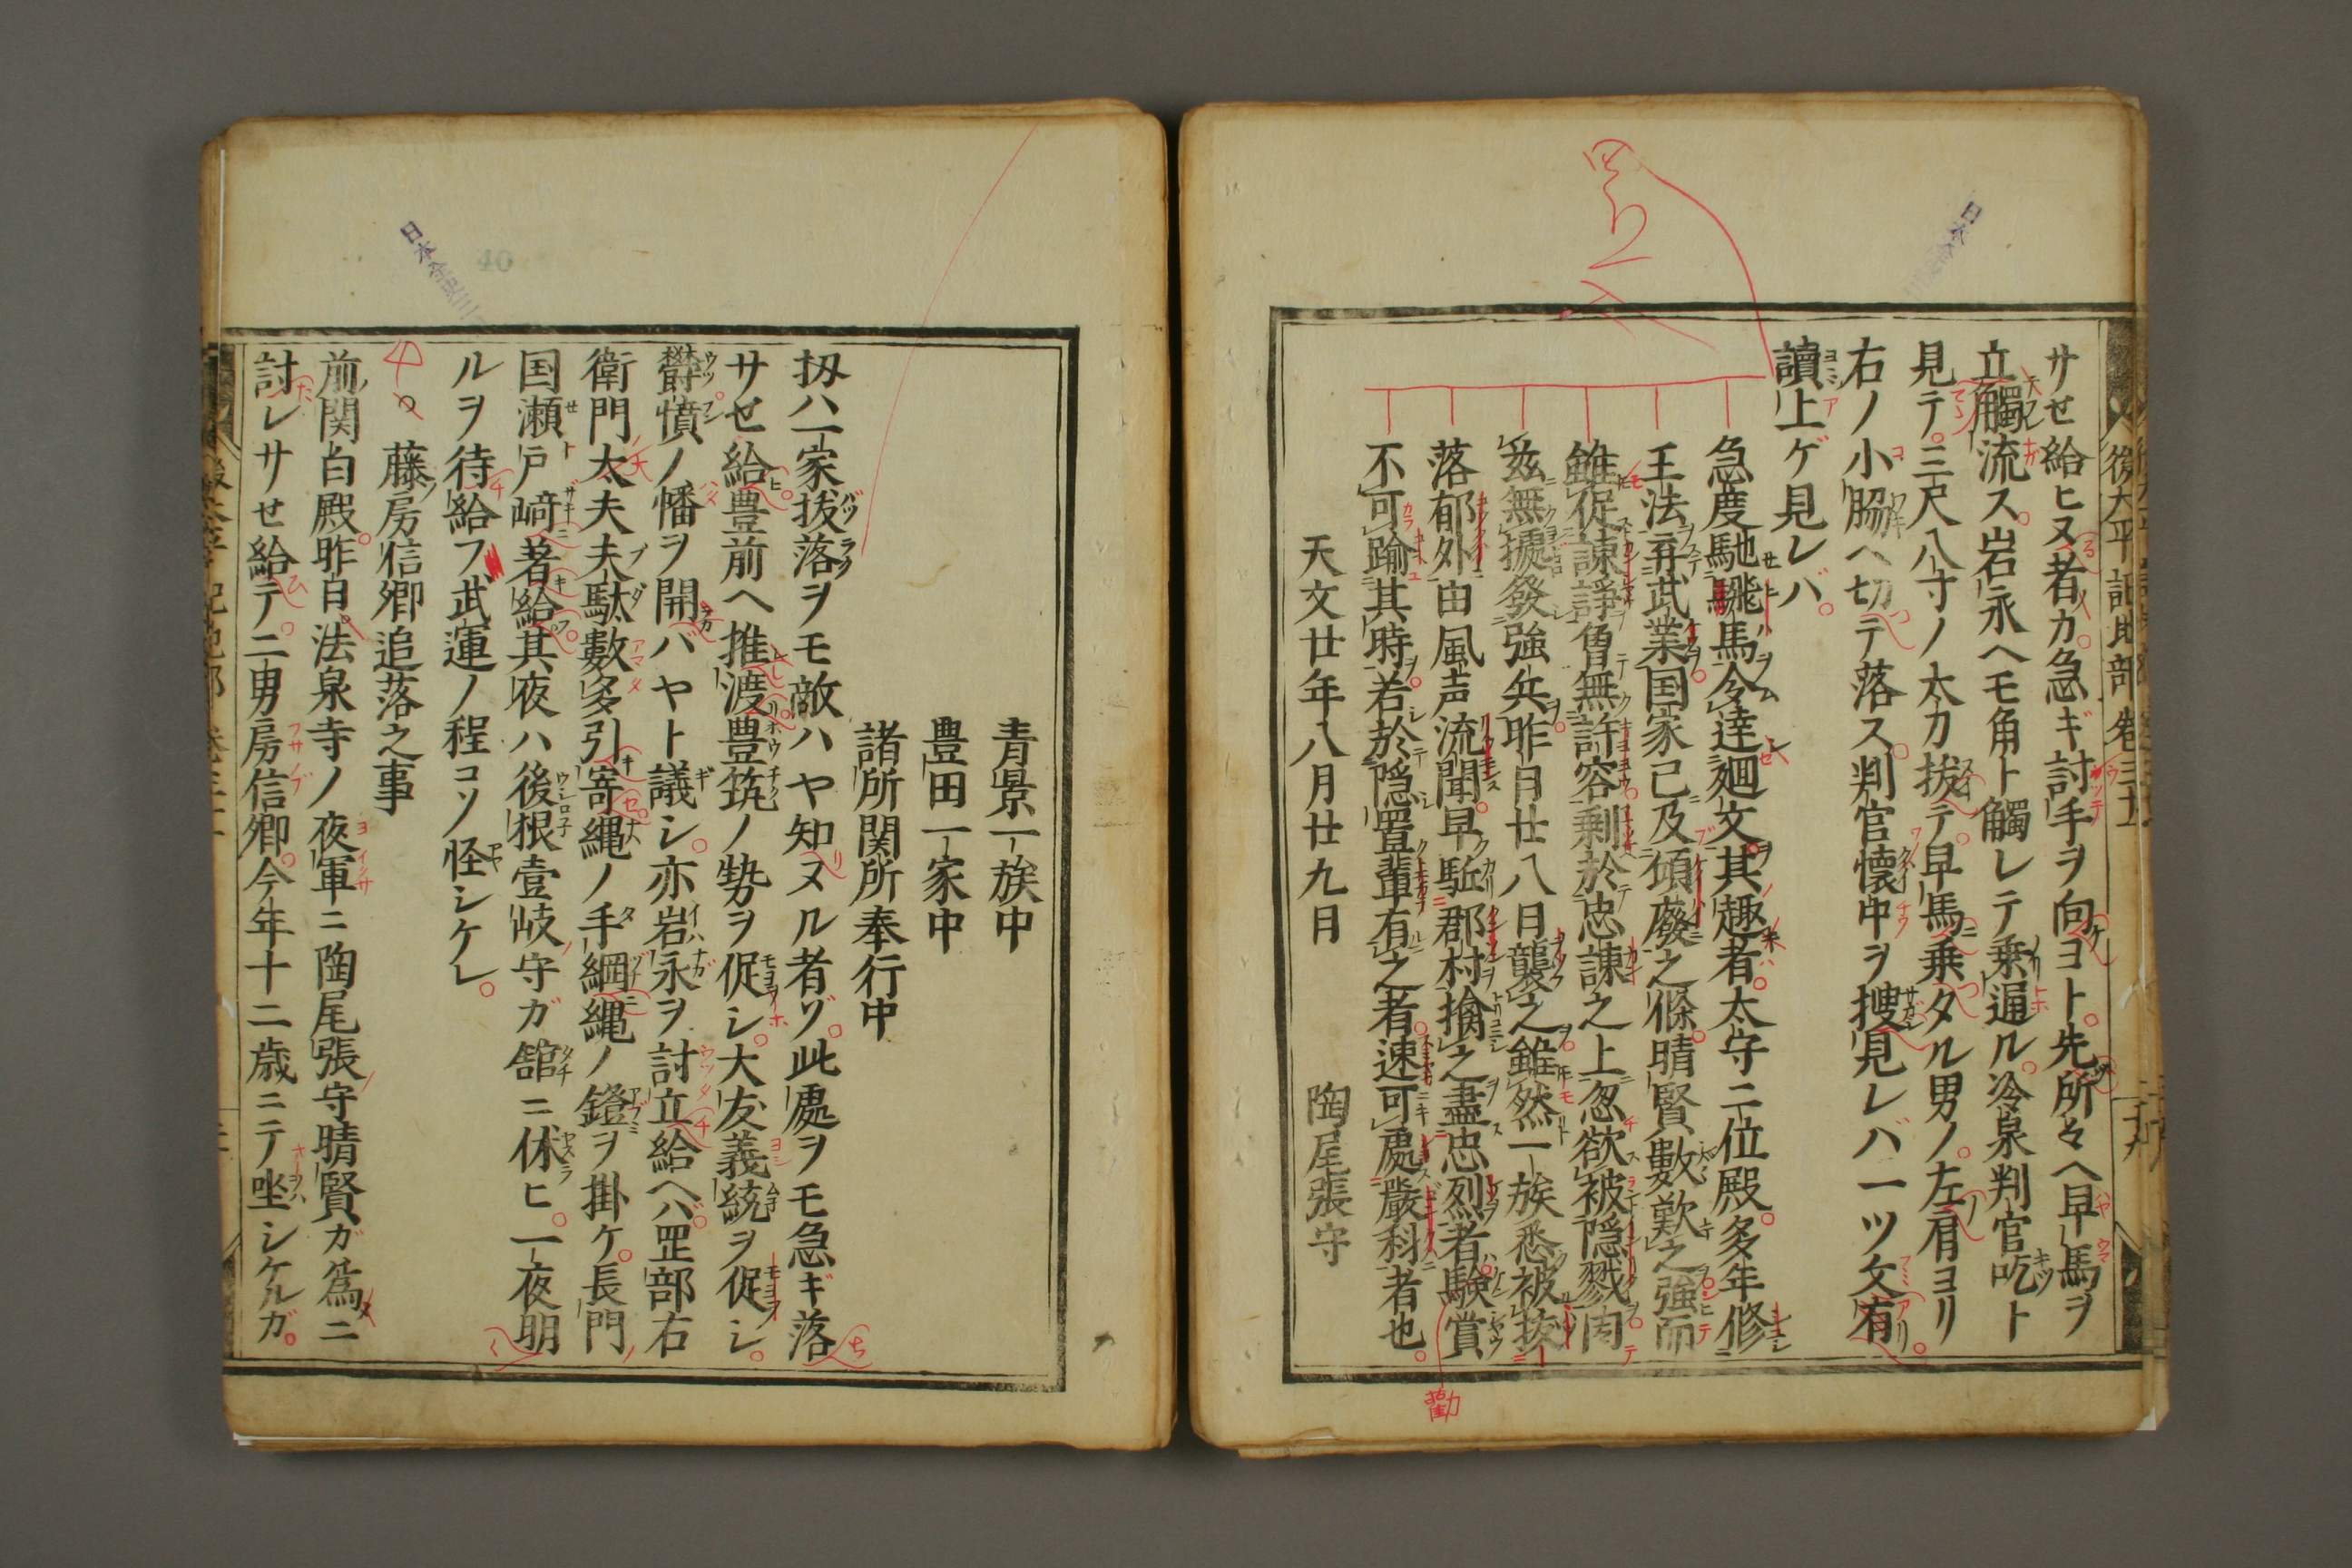 サせ給ヒヌ者カ急ギ討手ヲ向ヨト先所々ヘ早馬ヲ
立觸流ス岩永ヘモ角ト觸レテ乗通ル冷泉判官吃ト
見テ三尺八寸ノ太刀抜テ早馬乗タル男ノ左肩ヨリ
右ノ小脇ヘ切テ落ス判官懐中ヲ捜見レバ一ツ文有
讀上ゲ見レバ
急度馳飛馬令達廻文其趣者太守二位殿多年修
王法弃武業国家已及頽廢之條晴賢數歎之強而
雖促諫諍曽無許容剰於忠諫之上忽欲被隠戮因
茲無據發強兵昨月廿八日襲之雖然一族悉被抜
落郁外由風声流聞早駈郡村擒之盡忠烈者驗賞
不可踰其時若於隠置輩有之者速可處嚴科者也
天文廿年八月廿九日 陶尾張守
青景一族中
豊田一家中
諸所関所奉行中
扨ハ一家抜落ヲモ敵ハヤ知ヌル者ゾ此處ヲモ急ギ落
サせ給豊前ヘ推渡豊筑ノ勢ヲ促シ大友義統ヲ促シ
欝憤ノ幡ヲ開バヤト議シ亦岩永ヲ討立給ヘバ罡部右
衛門太夫夫駄數多引寄縄ノ手綱縄ノ鐙ヲ掛ケ長門
国瀬戸﨑著給其夜ハ後根壹岐守ガ舘ニ休ヒ一夜明
ルヲ待給フ武運ノ程コソ怪シケレ
藤房信卿追落之事
前関白殿昨日法泉寺ノ夜軍ニ陶尾張守晴賢ガ為ニ
討レサせ給テ二男房信卿今年十二歳ニテ坐シケルガ